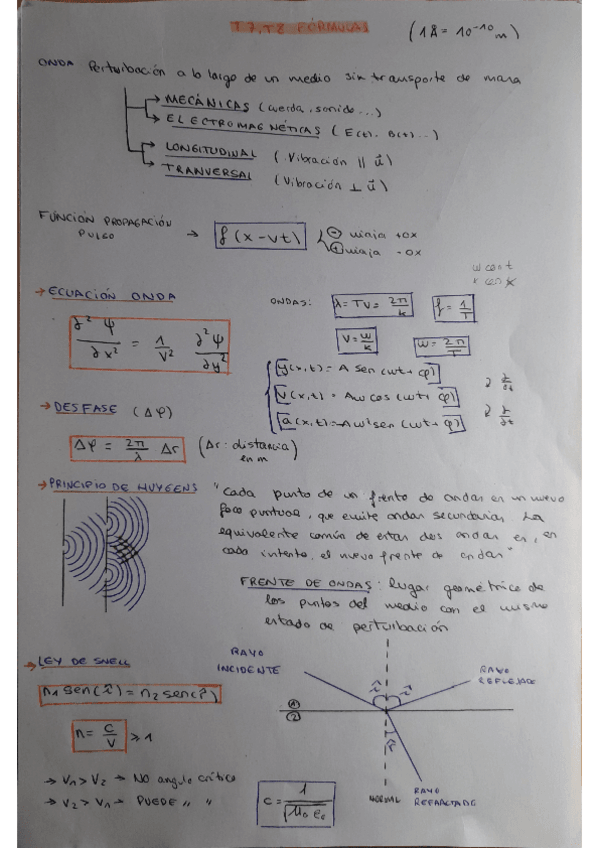 T7, T8 FÓRMULAS
(1Å = 10⁻¹⁰ m)
ONDA Perturbación a lo largo de un medio sin transporte de masa
→ MECÁNICAS (cuerda, sonido...)
→ ELECTROMAGNÉTICAS (E(t), B(t)...)
→ LONGITUDINAL (Vibración || u⃗)
→ TRANVERSAL (Vibración ⊥ u⃗)
FUNCIÓN PROPAGACIÓN PULSO → f(x - vt)
⊖ viaja +ox
⊕ viaja -ox
w con t
k con x
→ ECUACIÓN ONDA
∂²Ψ/∂x² = 1/V² ∂²Ψ/∂y²
ONDAS: λ = TV = 2π/k f = 1/T
V = w/k w = 2π/T
y(x,t) = A sen(wt + φ)
v(x,t) = Aw cos(wt + φ)
a(x,t) = -Aw² sen(wt + φ)
→ DESFASE (Δφ)
Δφ = 2π/λ Δr (Δr: distancia) en m
→ PRINCIPIO DE HUYGENS "Cada punto de un frente de ondas es un nuevo
foco puntual, que emite ondas secundarias. La
equivalente común de estas des ondas es, en
cada intento, el nuevo frente de ondas"
FRENTE DE ONDAS: Lugar geométrico de
los puntos del medio con el mismo
estado de perturbación
→ LEY DE SNELL
n₁ sen(î) = n₂ sen(r̂)
n = c/v ≥ 1
→ V₁ > V₂ → NO angulo crítico
→ V₂ > V₁ → PUEDE " "
c = 1/√(μ₀ e₀)
RAYO INCIDENTE
RAYO REFLEJADO
î î
① ②
r̂
NORMAL
RAYO REFRACTADO